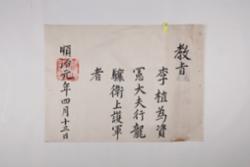 敎旨
李植爲資
憲大夫行龍
驤衛上護軍
者
順治元年四月十三日